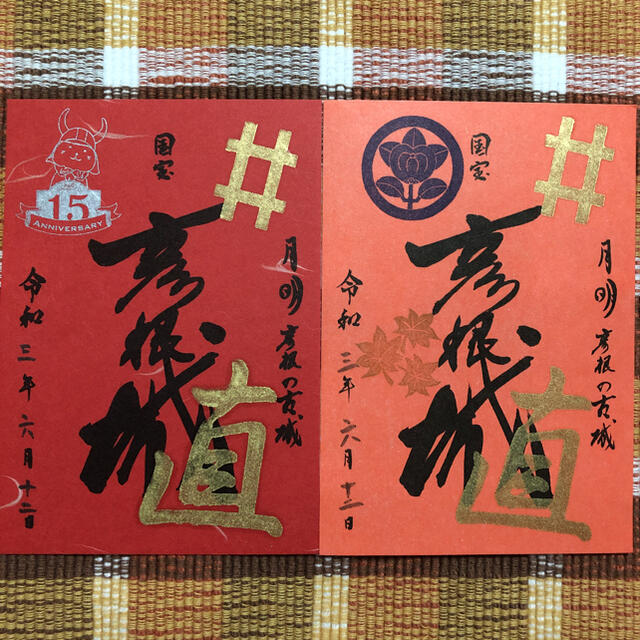 井
月明 彦根の古城
国宝
彦根城
直
15
ANNIVERSARY
令和三年六月十二日
井
月明 彦根の古城
国宝
彦根城
直
令和三年六月十二日